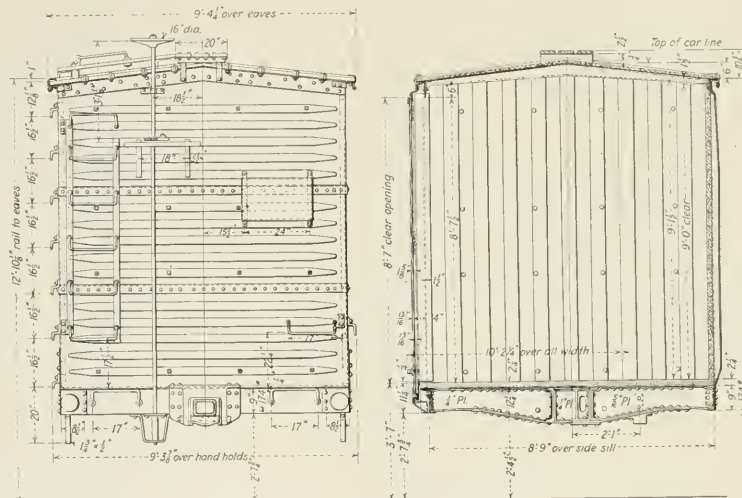 9'-4¼" over eaves
16" dia.
20"
18½"
18"
15½"
24"
12'-10⅛" rail to eaves
1"
12⅛"
16½"
16½"
16½"
16½"
16½"
16½"
20"
17½"
17"
8½"
17"
17"
8½"
1¾" x ½"
9'-3⅞" over hand holds
2'-4¼"
Top of car line
2½"
6"
8'-7" clear opening
8'-7½"
9'-1½"
9'-0" clear
4"
10'-2¼" over all width
2¼"
9"
¼" Pl.
½" Pl.
Pl.
2'-1"
8'-9" over side sill
3'-7"
2'-7¾"
2'-4½"